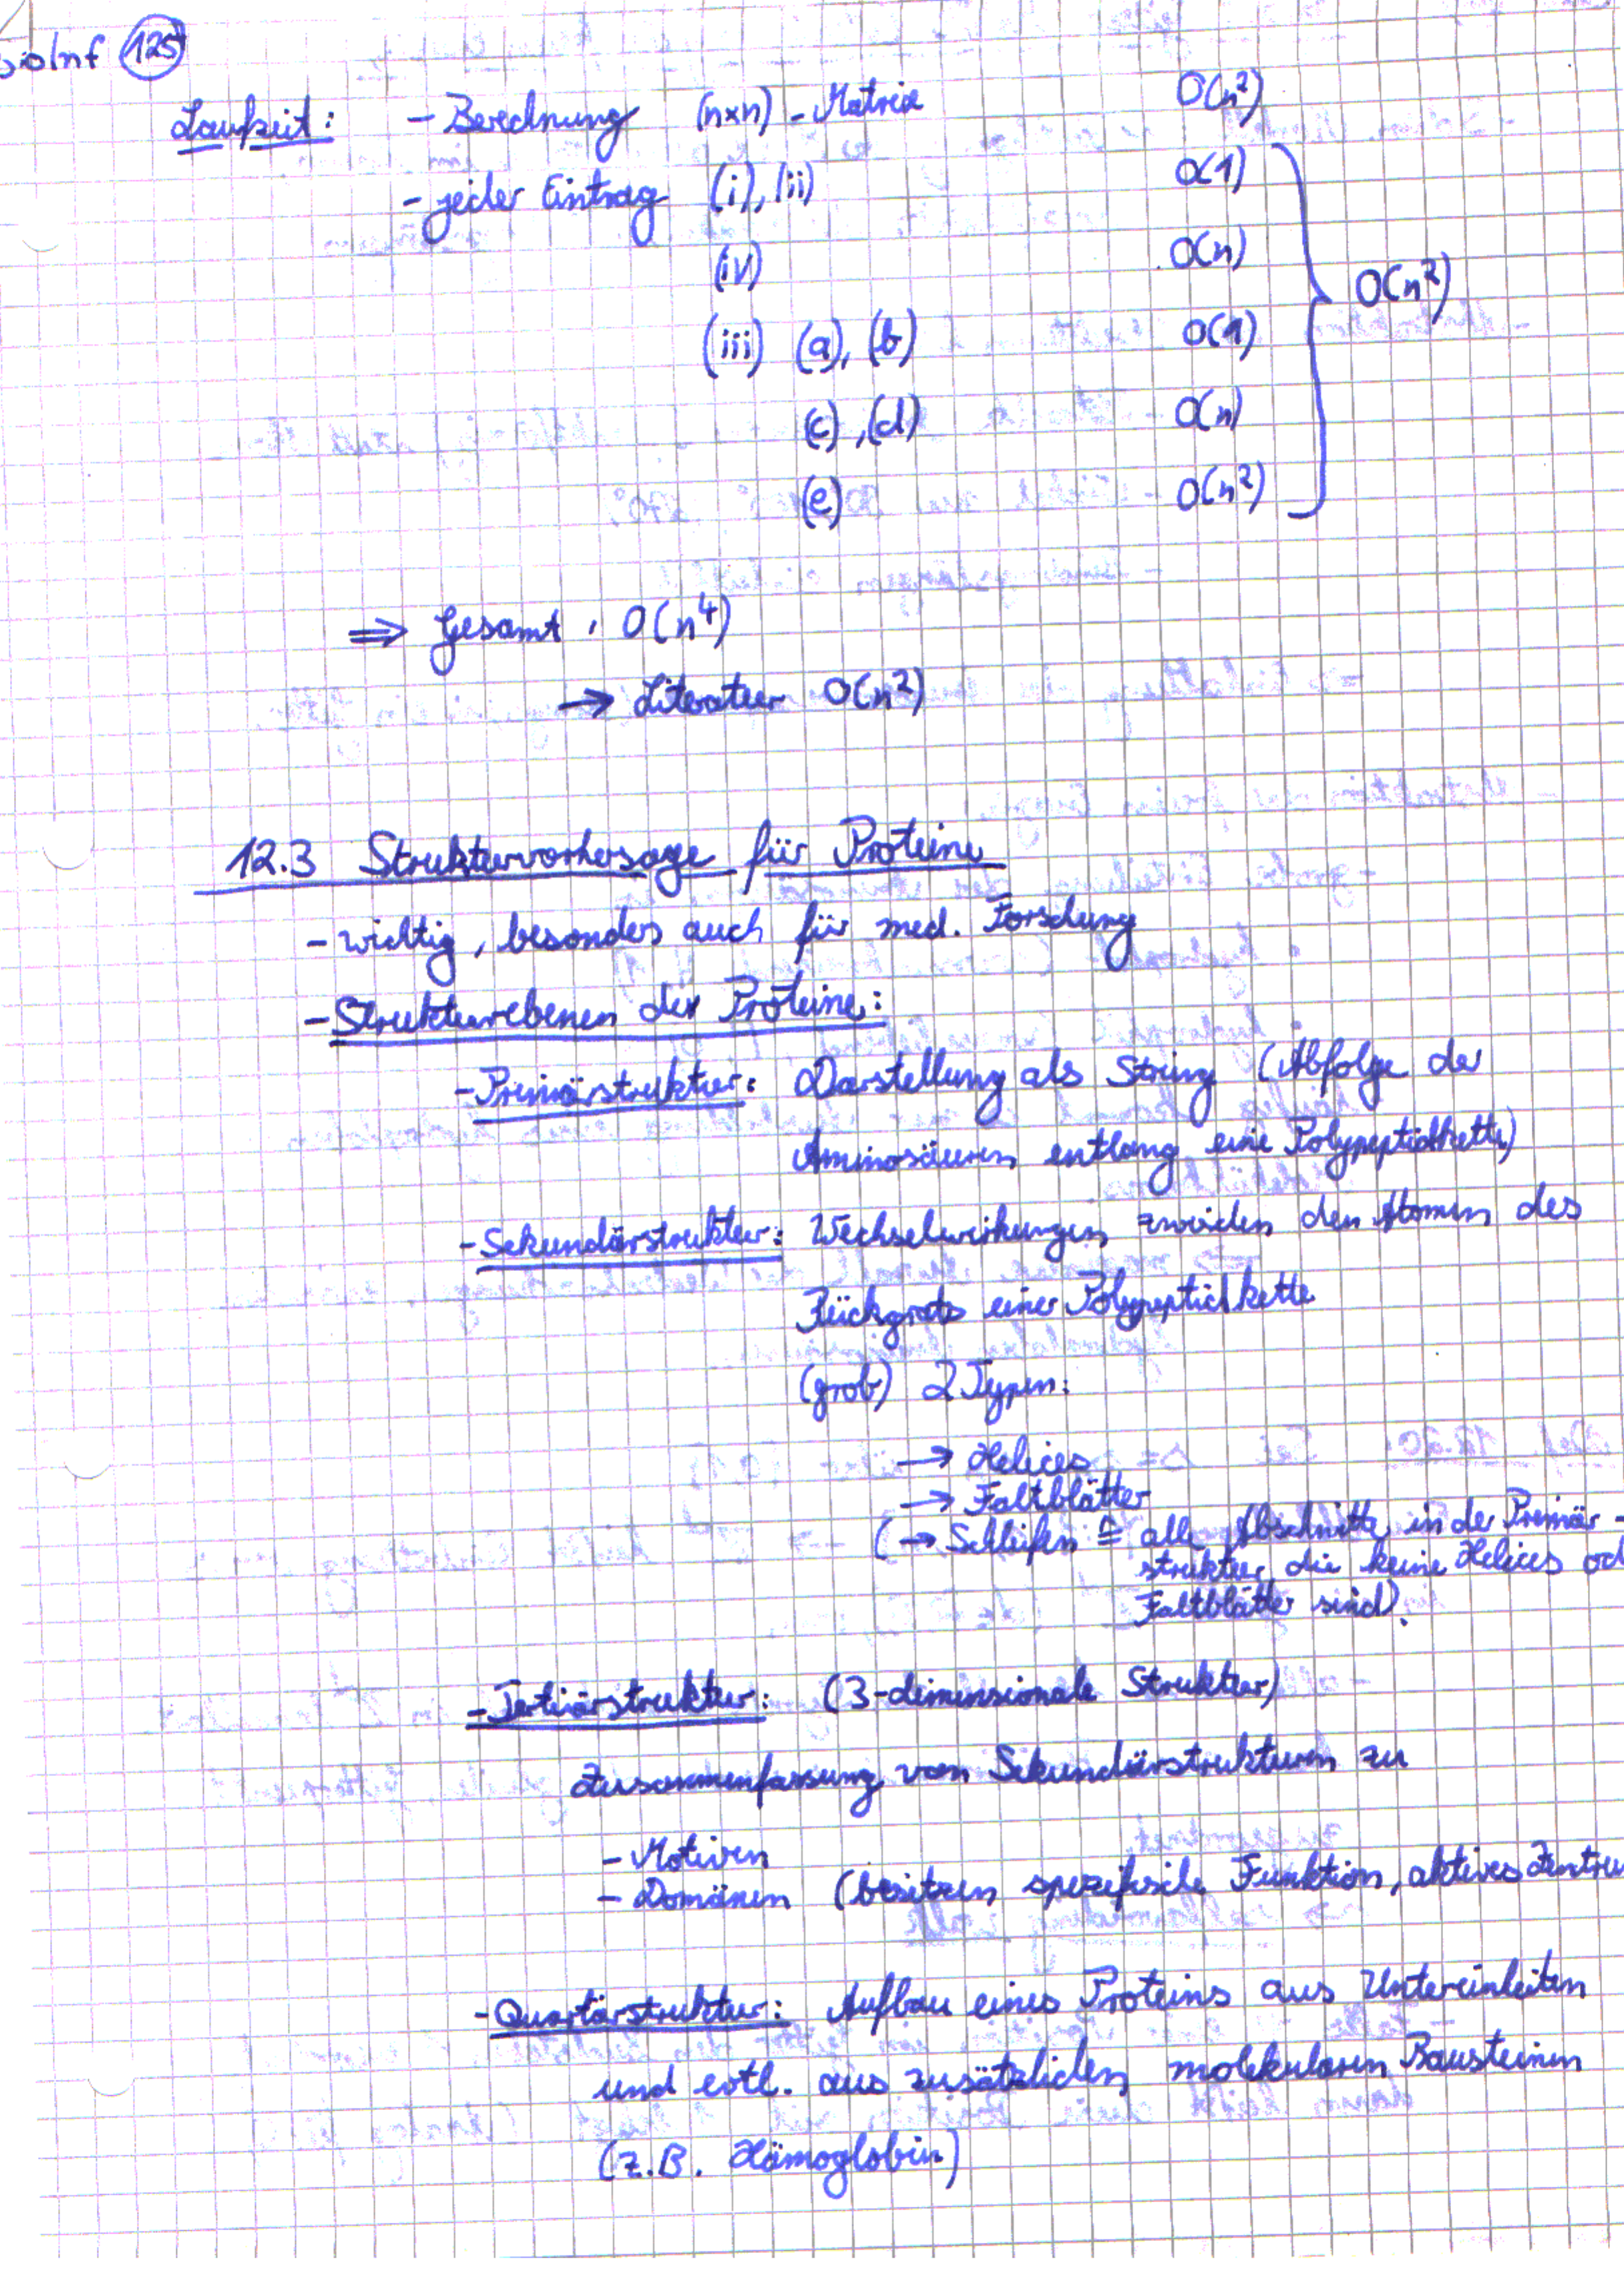 BioInf 125
Laufzeit: - Berechnung (n×n) - Matrix O(n²)
- jeder Eintrag (i), (ii) O(1)
(iv) O(n)
O(n²)
(iii) (a), (b) O(1)
(c), (d) O(n)
(e) O(n²)
⇒ Gesamt: O(n⁴)
→ Literatur O(n²)
12.3 Strukturvorhersage für Proteine
- wichtig, besonders auch für med. Forschung
- Strukturebenen der Proteine:
- Primärstruktur: Darstellung als String (Abfolge der
Aminosäuren entlang eine Polypeptidkette)
- Sekundärstruktur: Wechselwirkungen zwischen den Atomen des
Rückgrats einer Polypeptidkette
(grob) 2 Typen:
→ Helices
→ Faltblätter
(→ Schleifen ≙ alle Abschnitte in der Primär-
struktur, die keine Helices od
Faltblätter sind).
- Tertiärstruktur: (3-dimensionale Struktur)
Zusammenfassung von Sekundärstrukturen zu
- Motiven
- Domänen (besitzen spezifische Funktion, aktives Zentru
- Quartärstruktur: Aufbau eines Proteins aus Untereinheiten
und evtl. aus zusätzlichen molekularen Bausteinen
(z.B. Hämoglobin)